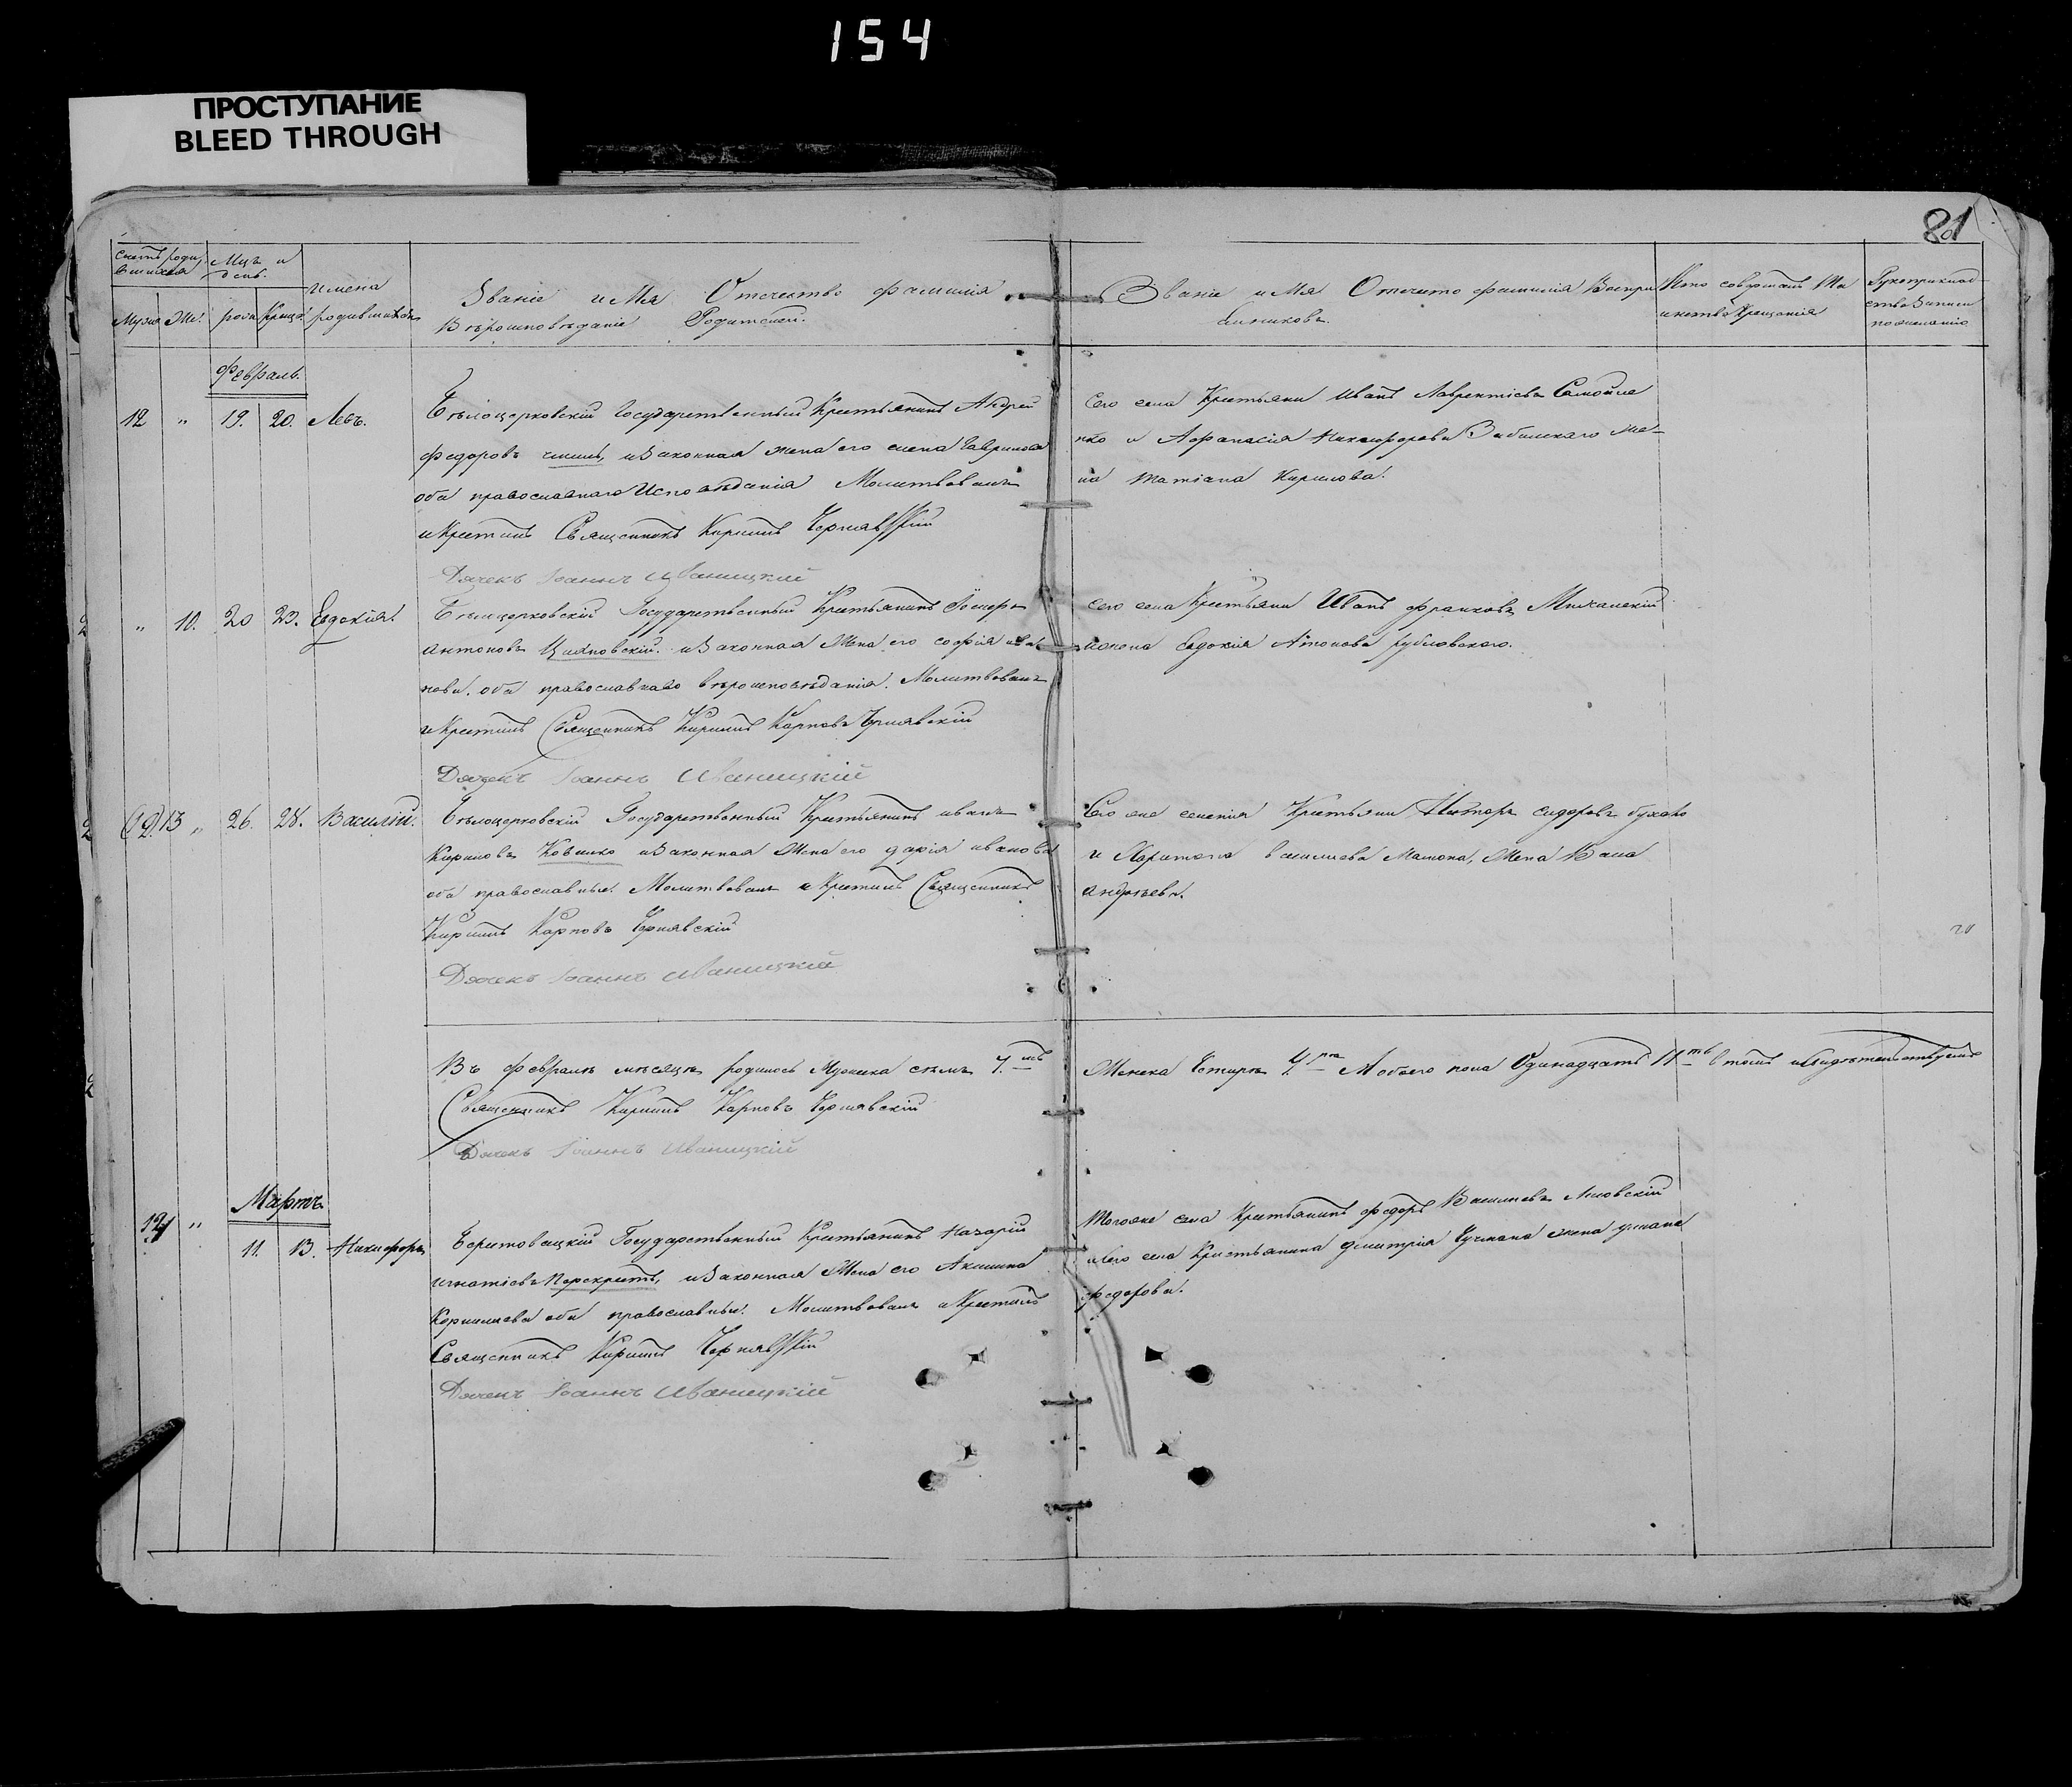 154
ПРОСТУПАНИЕ
BLEED THROUGH
81
Счетъ роди Мцъ и
вшихся день.
Имена
Мужи Же. рожд крещ. родившихся
Званіе имя Отечество фамилія
Вѣроисповѣданіе Родителей.
Званіе имя Отечество фамилія Воспри
емниковъ.
Кто совершалъ Та
инство Крещенія
Рукоприклад
ство записи
по желанію
Февраль.
12 " 19. 20. Левъ.
Бѣлоцерковскій Государственный Крестьянинъ Андрей
Федоровъ и законная жена его елена Гаврилова
оба православнаго Исповѣданія Молитвовалъ
и Крестилъ Священникъ Кирилъ Чернявскій
Дячекъ Іоаннъ Иваницкій
Сего села Крестьяни Иванъ Лаврентіевъ Самойле
нко и Афанасія Никифорова же-
на татіана Кирилова.
" 10. 20 23. Евдокія.
Бѣлоцерковскій Государственный Крестьянинъ
антоновъ и законная Жена его софія ива
нова. оба православнаго вѣроисповѣданія. Молитвовалъ
и Крестилъ Священникъ Кирилъ Карповъ Чернявскій
Дячекъ Іоаннъ Иваницкій
сего села Крестьяни Иванъ франковъ
Евдокія Антонова
(12) 13 " 26. 28. Василій.
Бѣлоцерковскій Государственный Крестьянинъ иванъ
Кириловъ и законная Жена его дарія иванова
оба православные. Молитвовалъ и Крестилъ Священникъ
Кирилъ Карповъ Чернявскій
Дячекъ Іоаннъ Иваницкій
Крестьяни сидоровъ
и василиева Жена
андрѣева.
Въ февралѣ мѣсяцѣ родилось Мужеска семь 7.мь
Женска Четыре 4.ре А обоего пола Одинадцать 11ть в томъ и свидѣтельствуемъ
Священникъ Кирилъ Карповъ Чернявскій
Дячекъ Іоаннъ Иваницкій
Мартъ
14 "
11. 13. Никифоръ
Государственный Крестьянинъ Назарій
игнатіевъ Перекрестъ, и законная Жена его Акилина
Корнилиева оба православные. Молитвовалъ и Крестилъ
Священникъ Кирилъ Чернявскій
Дячекъ Іоаннъ Иваницкій
Тогоже села Крестьянинъ федоръ Василиевъ
сего села Крестьянина димитрія жена уліана
федорова.